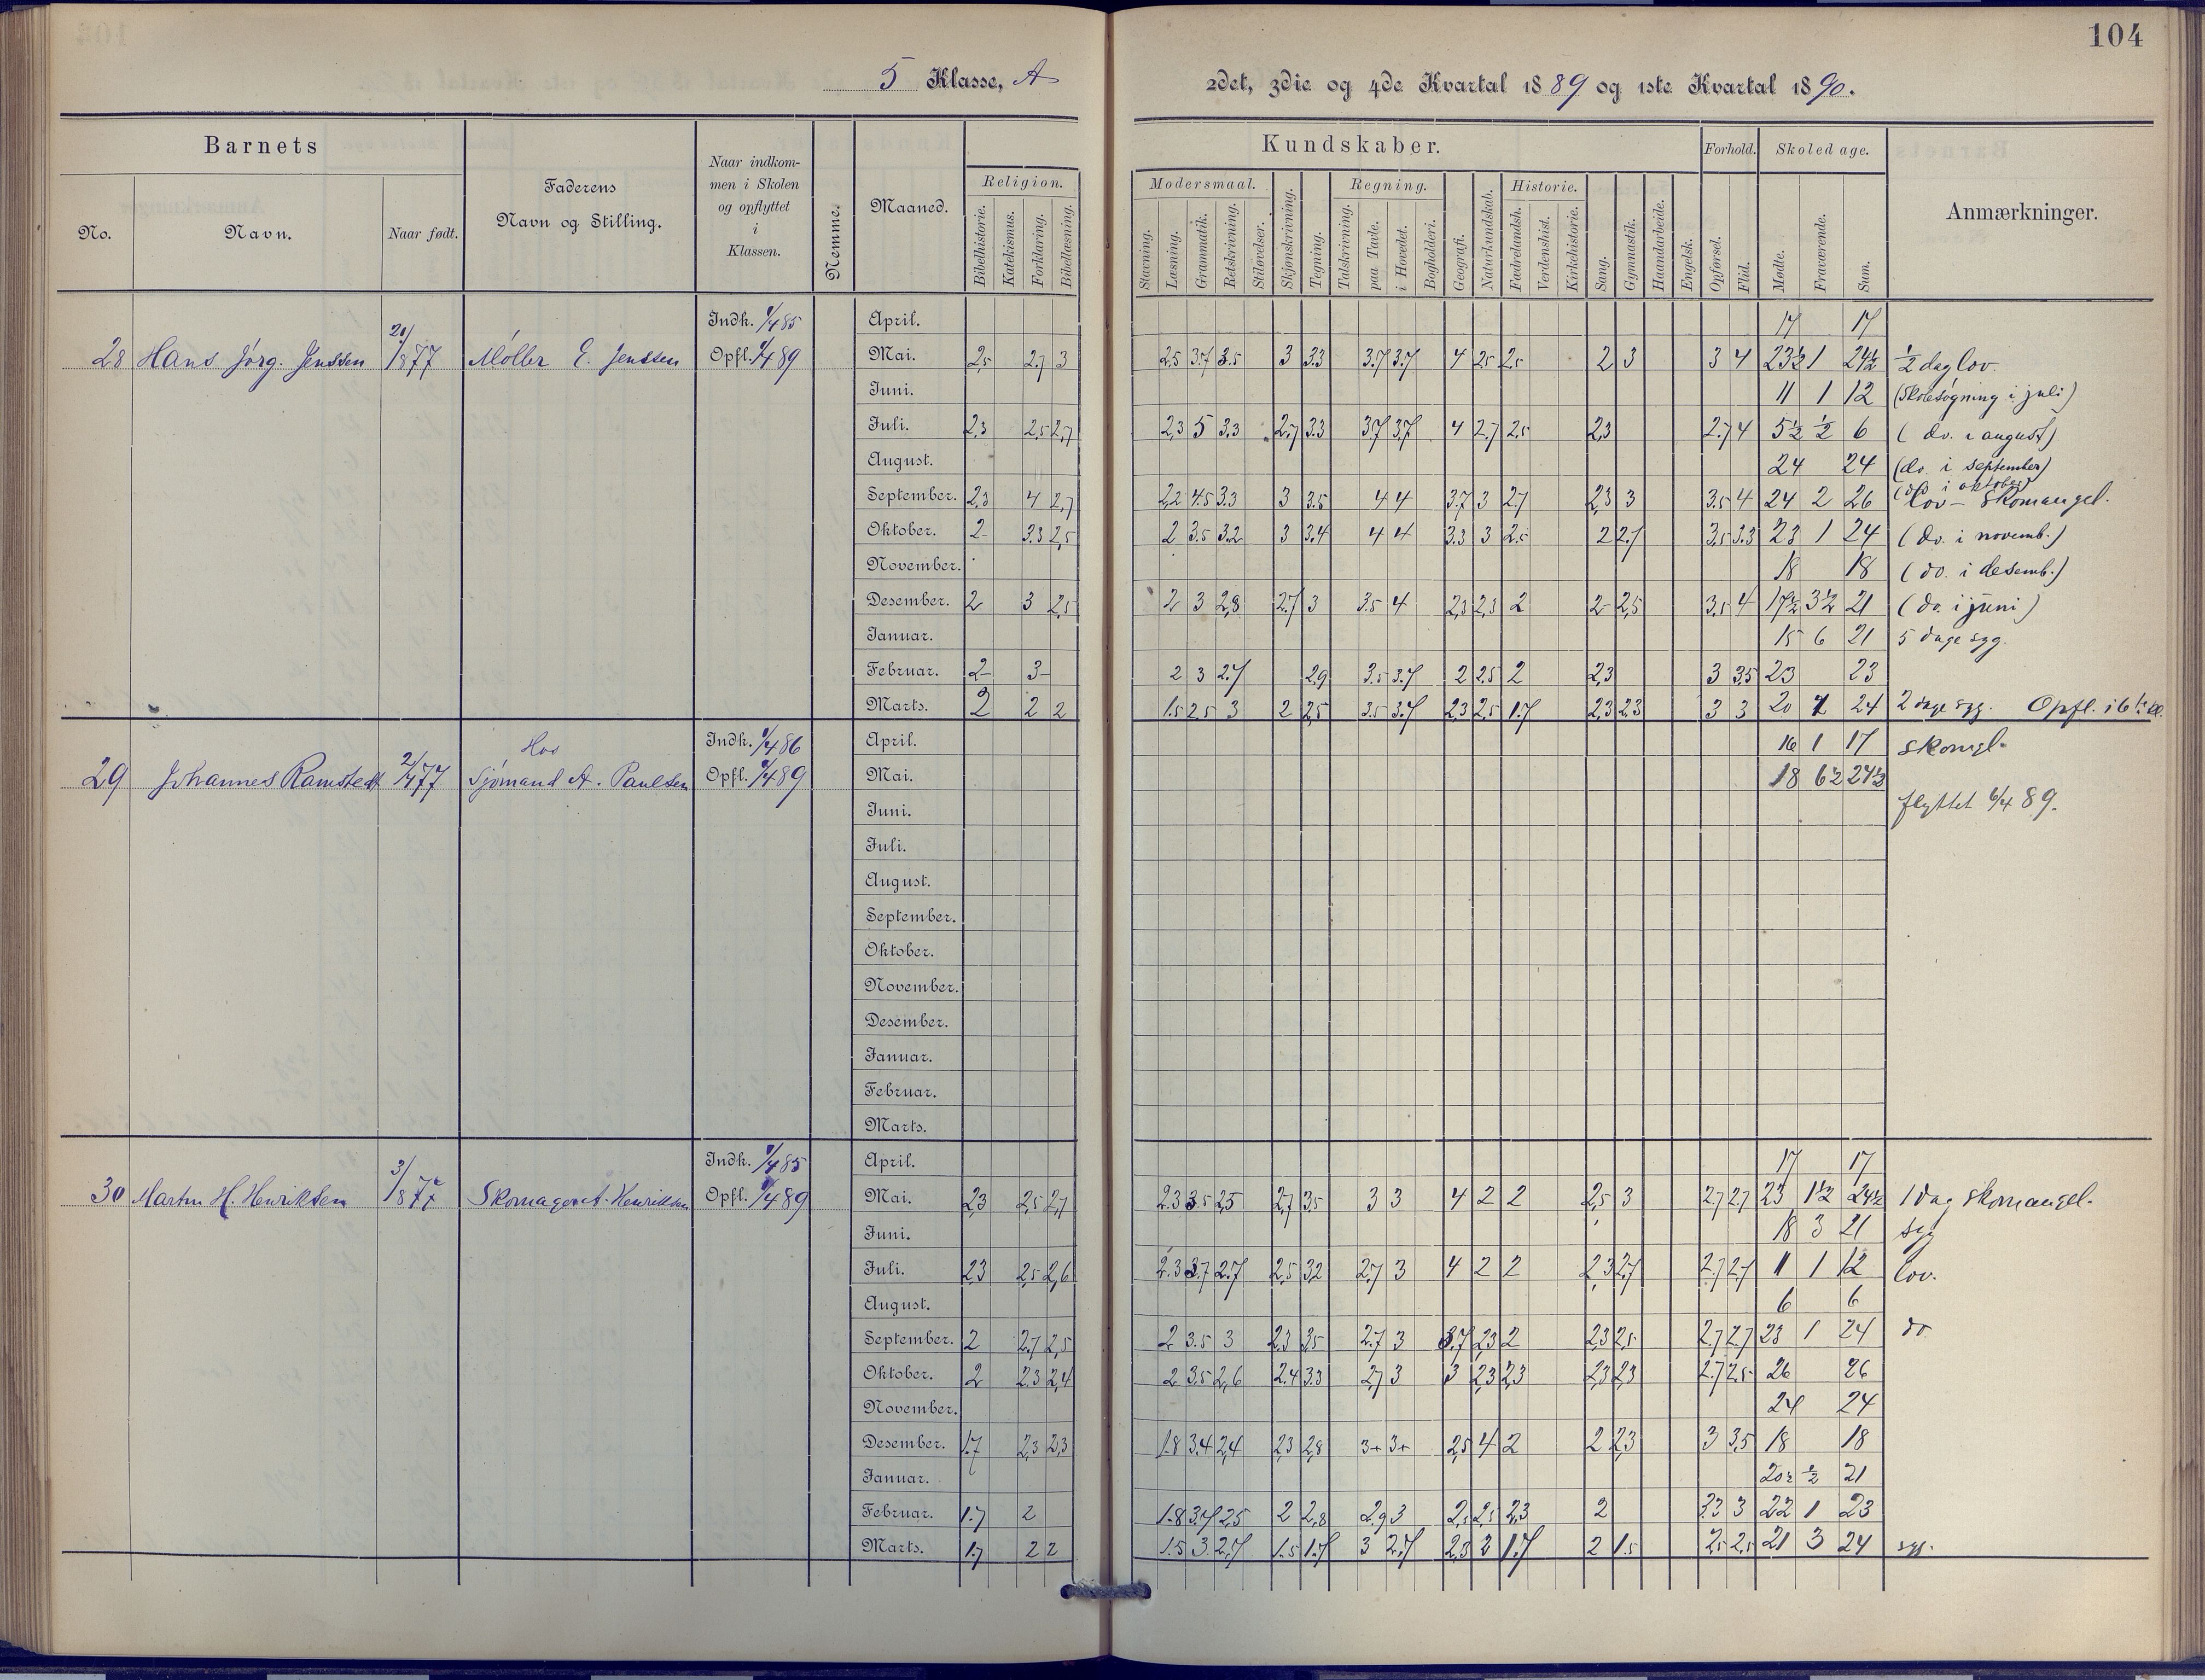 104
5 Klasse, A
2det, 3die og 4de Kvartal 1889 og 1ste Kvartal 1890.
Barnets
No.
Navn.
Naar født.
Faderens
Navn og Stilling.
Naar indkom-
men i Skolen
og opflyttet
i
Klassen.
Nemme.
Maaned.
Religion.
Bibelhistorie.
Katekismus.
Forklaring.
Bibellæsning.
Kundskaber.
Modersmaal.
Stavning.
Læsning.
Grammatik.
Retskrivning.
Stiløvelser.
Skjønskrivning.
Tegning.
Regning.
Talskrivning.
paa Tavle.
i Hovedet.
Bogholderi.
Geografi.
Naturkundskab.
Historie.
Fædrelandsh.
Verdenshist.
Kirkehistorie.
Sang.
Gymnastik.
Haandarbeide.
Engelsk.
Forhold.
Opførsel.
Flid.
Skoledage.
Mødte.
Fraværende.
Sum.
Anmærkninger.
Indk. 1/4 85 April. 17 17
28 Hans Jörg. Jenssen 20/8 77 Møller E. Jenssen Opfl. 1/4 89 Mai. 2,5 2,7 3 2,5 3.7 3.5 3 3.3 3.7 3.7 4 2.5 2.5 2 3 3 4 23½ 1 24½ ½ dag lov.
Juni. 11 1 12 (Skolesøgning i juli)
Juli. 2,3 2,5 2,7 2,3 5 3,3 2,7 3.3 3.7 3.7 4 2.7 2.5 2,3 2.7 4 5½ ½ 6 (do. i august)
August. 24 24 (do. i september)
(do i oktober)
September. 2,3 4 2,7 2,2 4.5 3.3 3 3.5 4 4 3.7 3 2.7 2,3 3 3.5 4 24 2 26 lov - Skomangel.
Oktober. 2- 3.3 2,5 2 3.5 3.2 3 3.4 4 4 3.3 3 2.5 2 2.7 3.5 3.3 23 1 24 (do. i novemb.)
November. 18 18 (do. i desemb.)
Desember. 2 3 2,5 2 3 2,8 2.7 3 3.5 4 2,3 2,3 2 2- 2,5 3,5 4 17½ 3½ 21 (do. i juni)
Januar. 15 6 21 5 dage syg.
Februar. 2- 3- 2 3 2.7 2.9 3.5 3.7 2 2.5 2 2,3 3 3.5 23 23
Marts. 2 2 2 1.5 2.5 3 2 2,5 3.5 3.7 2,3 2,5 1.7 2,3 2,3 3 3 20 24 2 dage syg. Opfl. i 6te kl.
Hos Indk. 1/4 86 April. 16 1 17 skomgl.
29 Johannes Ramstedt 2/4 77 Sjømand A. Paulsen Opfl. 1/4 89 Mai. 18 6½ 24½
Juni. flyttet 6/4 89.
Juli.
August.
September.
Oktober.
November.
Desember.
Januar.
Februar.
Marts.
Indk. 1/4 85 April. 17 17
30 Martin H. Henriksen 3/8 77 Skomager A. Henriksen Opfl. 1/4 89 Mai. 2,3 2,5 2,7 2.3 3.5 2,5 2,7 3.5 3 3 4 2 2 2,5 3 2.7 2.7 23 1½ 24½ 1 dag skomangel.
Juni. 18 3 21 syg
Juli. 2,3 2,5 2,6 2.3 3.7 2.7 2,5 3.2 2,7 3 4 2 2 2,3 2,7 2.7 2.7 11 1 12 lov.
August. 6 6
September. 2 2.7 2,5 2 3.5 3 2,3 3.5 2.7 3 3.7 2,3 2 2,3 2,5 2.7 2.7 23 1 24 do
Oktober. 2 2.3 2,4 2 3.5 2,6 2.4 3.3 2,7 3 3 2,3 2,3 2,3 2,3 2.7 2.5 26 26
November. 24 24
Desember. 1.7 2,3 2,3 1.8 3.4 2,4 2,3 2,8 3+ 3+ 2,5 4 2 2 2,3 3 3.5 18 18
Januar. 20½ ½ 21
Februar. 1.7 2 1.8 3.7 2,5 2 2,8 2.9 3 2,5 2,5 2,3 2 3.3 3 22 1 23
Marts. 1.7 2 2 1.5 3. 2.7 1.5 1.7 3 2.7 2,3 2 1.7 2 1.5 2,5 2,5 21 3 24 syg.